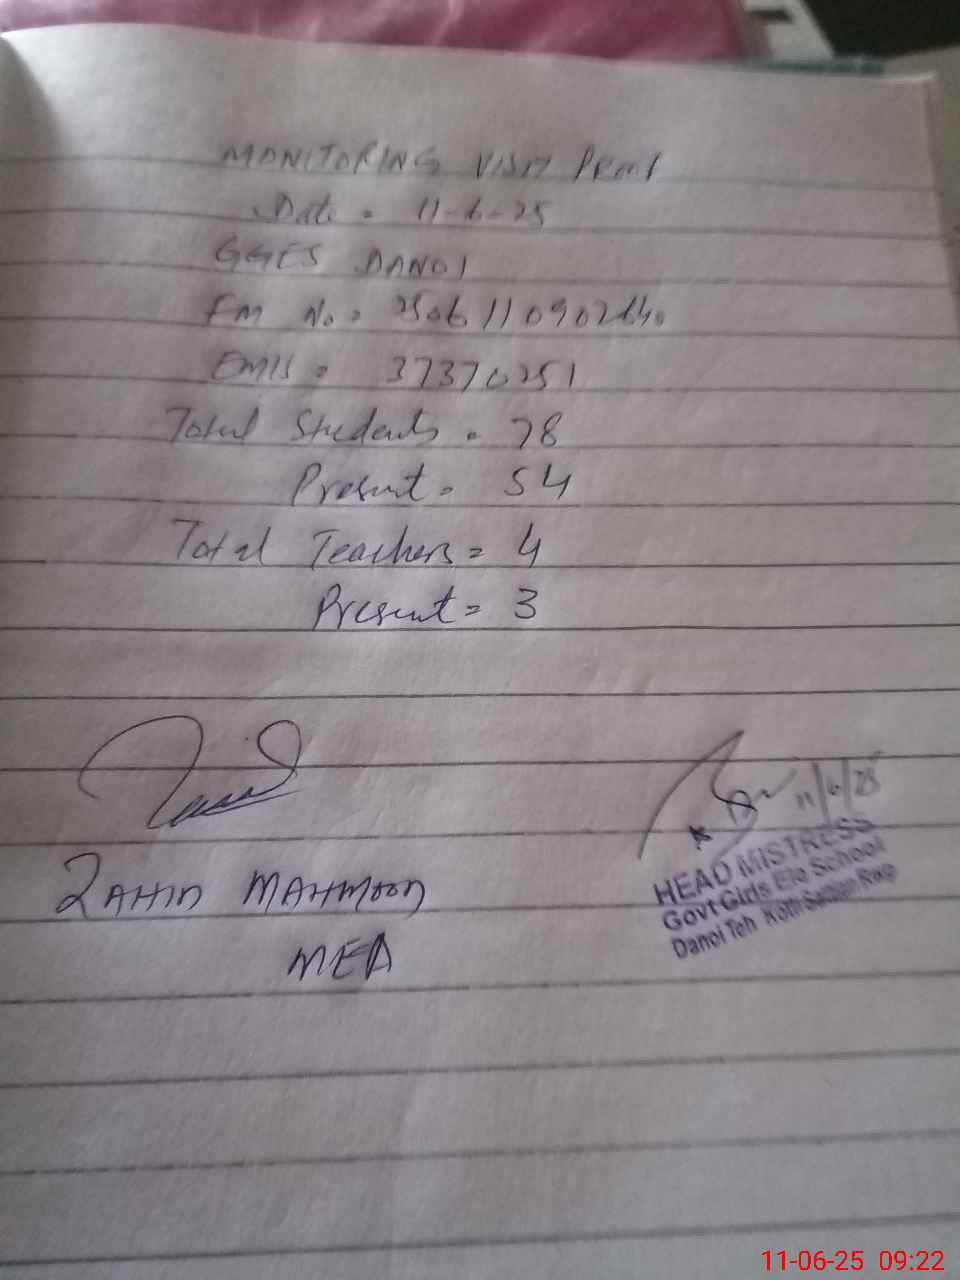 MONITORING VISIT PRMF
Date = 11-6-25
GGES DANOI
FM No = 2506110902640
EMIS = 37370251
Total Students = 78
Present = 54
Total Teachers = 4
Present = 3
11/6/25
ZAHID MAHMOOD
MEA
HEAD MISTRESS
Govt Girls Ele School
Danoi Teh Kotli Sattian Rwp
11-06-25 09:22